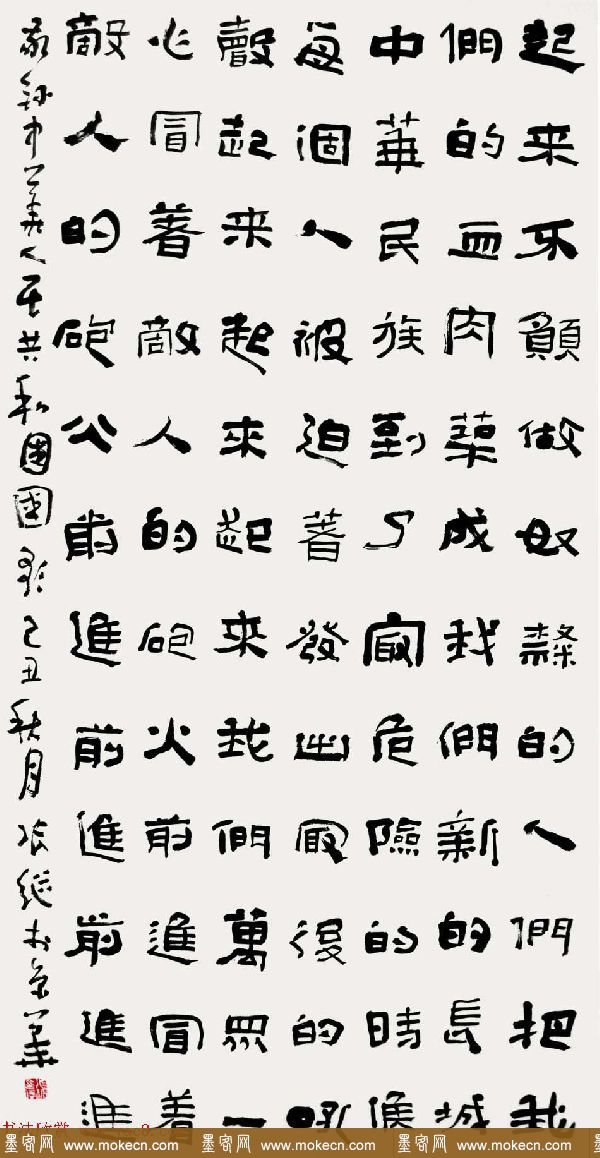 起来不願做奴隸的人們把我
們的血肉築成我們新的長城
中華民族到了最危險的時候
每個人被迫著發出最後的吼
聲起来起来起来我們萬眾一
心冒着敵人的砲火前進冒着
敵人的砲火前進前進前進進
敬錄中華人民共和國國歌己丑秋月張継书京華
墨客网 www.mokecn.com 墨客网 www.mokecn.com 墨客网 www.mokecn.com